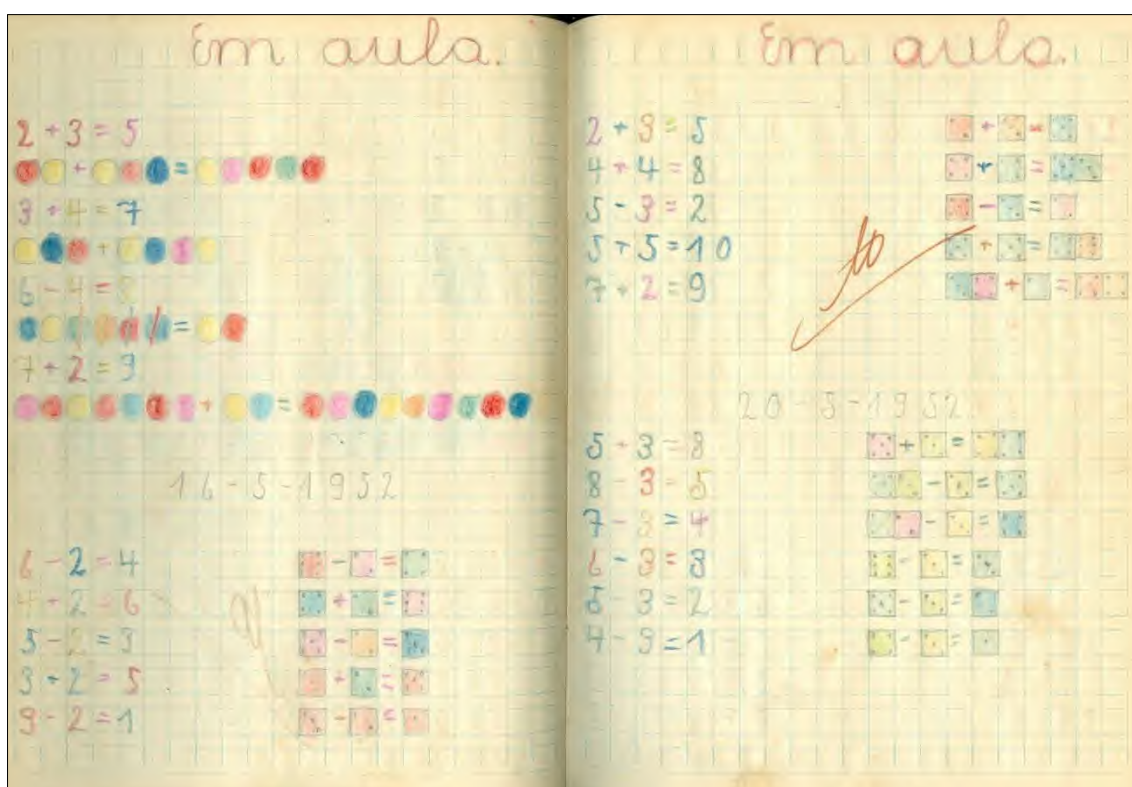 Em aula.
2 + 3 = 5
3 + 4 = 7
6 - 4 = 2
7 + 2 = 9
16-5-1952
6 - 2 = 4
4 + 2 = 6
5 - 2 = 3
3 + 2 = 5
3 - 2 = 1
Em aula.
2 + 3 = 5
4 + 4 = 8
5 - 3 = 2
5 + 5 = 10
7 + 2 = 9
20-5-1952
5 + 3 = 8
8 - 3 = 5
7 - 3 = 4
6 - 3 = 3
5 - 3 = 2
4 - 3 = 1